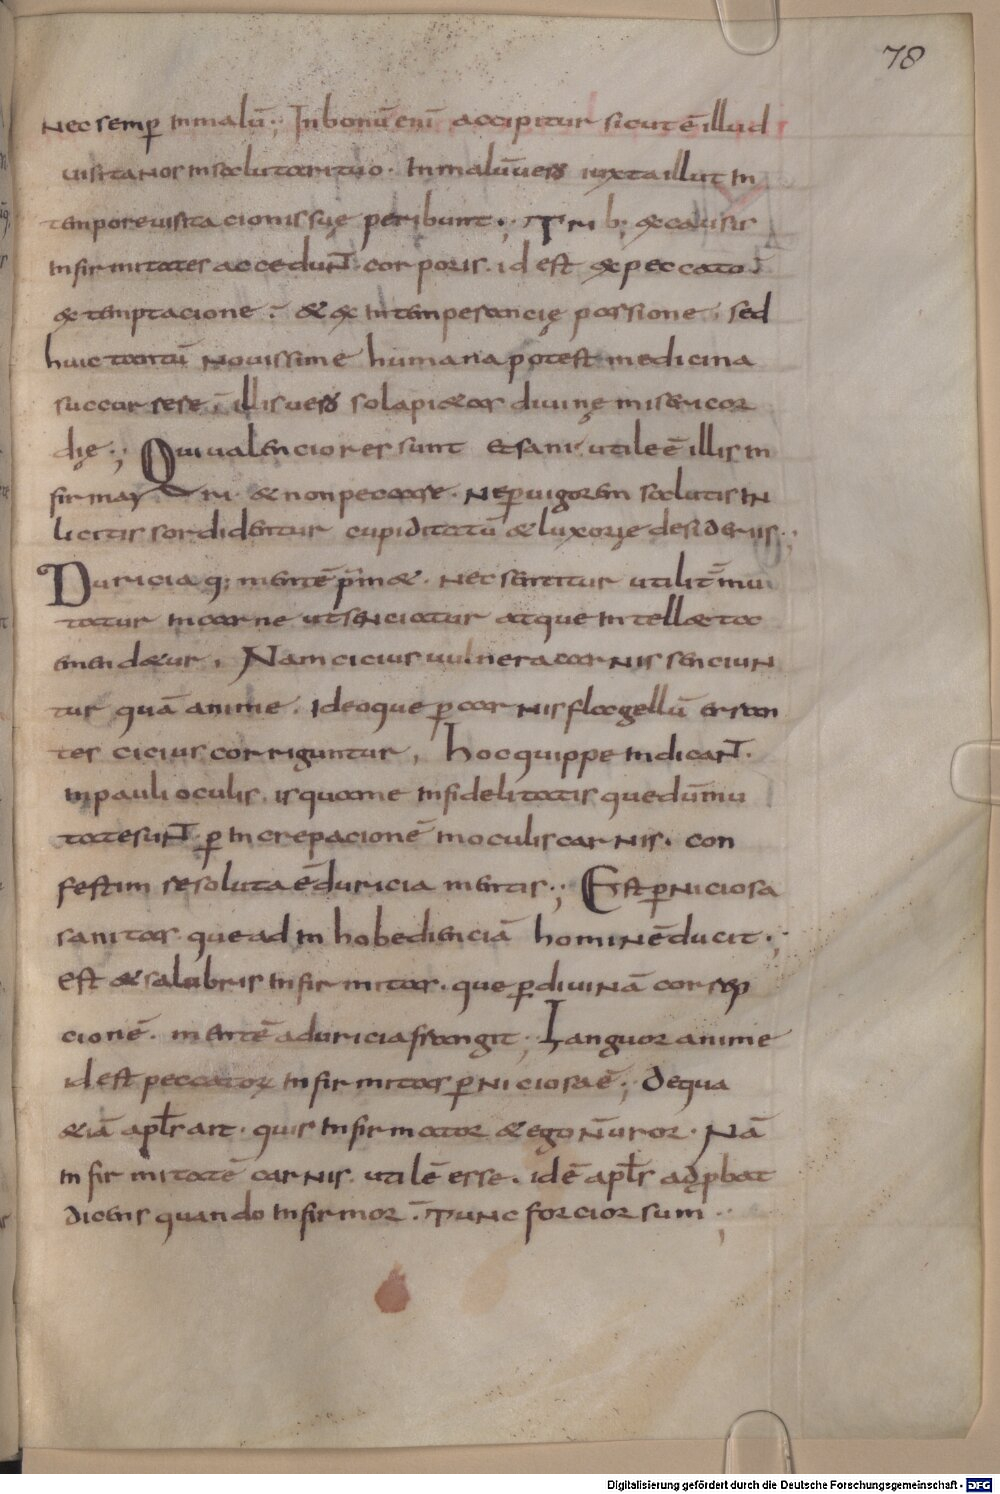 78
nec semp̄ in malū·; In bonū enī accipitur sicut ē illud
visita nos in salutari tuo· In malū vero iuxta illut in
tempore visitacionis suę peribunt·; Trib; ex causis
infirmitates accedunt corporis· id est ex peccato·
ex temptacione· & ex intemperancię passione· sed
huic tantū novissime humana potest medicina
succurrere· illis vero sola pi&as divinę misericor
dię·; Qui valenciores sunt et sani· utile ē illis in
firmari· & non peccare· Ne p̄ vigorem salutis in
licitis sordidentur cupiditatū & luxorię desideriis·;
Duricia q; mentē p̄m&· nec sentitur utilit̄ mu
tatur in carne ut senciatur atque intellecta
emend&ur· Nam cicius vulnera carnis senciun
tur quā anime· Ideoque p̄ carnis flagellū erran
tes cicius corriguntur, hoc quippe indicant
in pauli oculis· is quame infidelitatis que dū mu
tate sunt p̄ increpacionē in oculis carnis· con
festim resoluta ē duricia mentis·; Est p̄niciosa
sanitas que ad in hobedienciā hominē ducit·;
est & salubris infirmitas· que p̄ divinā correp
cionē· mentē a duricia frangit·; Languor anime
id est peccator infirmitas p̄niciosa ē·; De qua
&iā apl̄s ait· quis infirmator & ego n̄ uror· Nā
infirmitatē carnis utilē esse· idē apl̄s adp̱bat
dicens quando infirmor· Tunc forcior sum·;
Digitalisierung gefördert durch die Deutsche Forschungsgemeinschaft - DFG